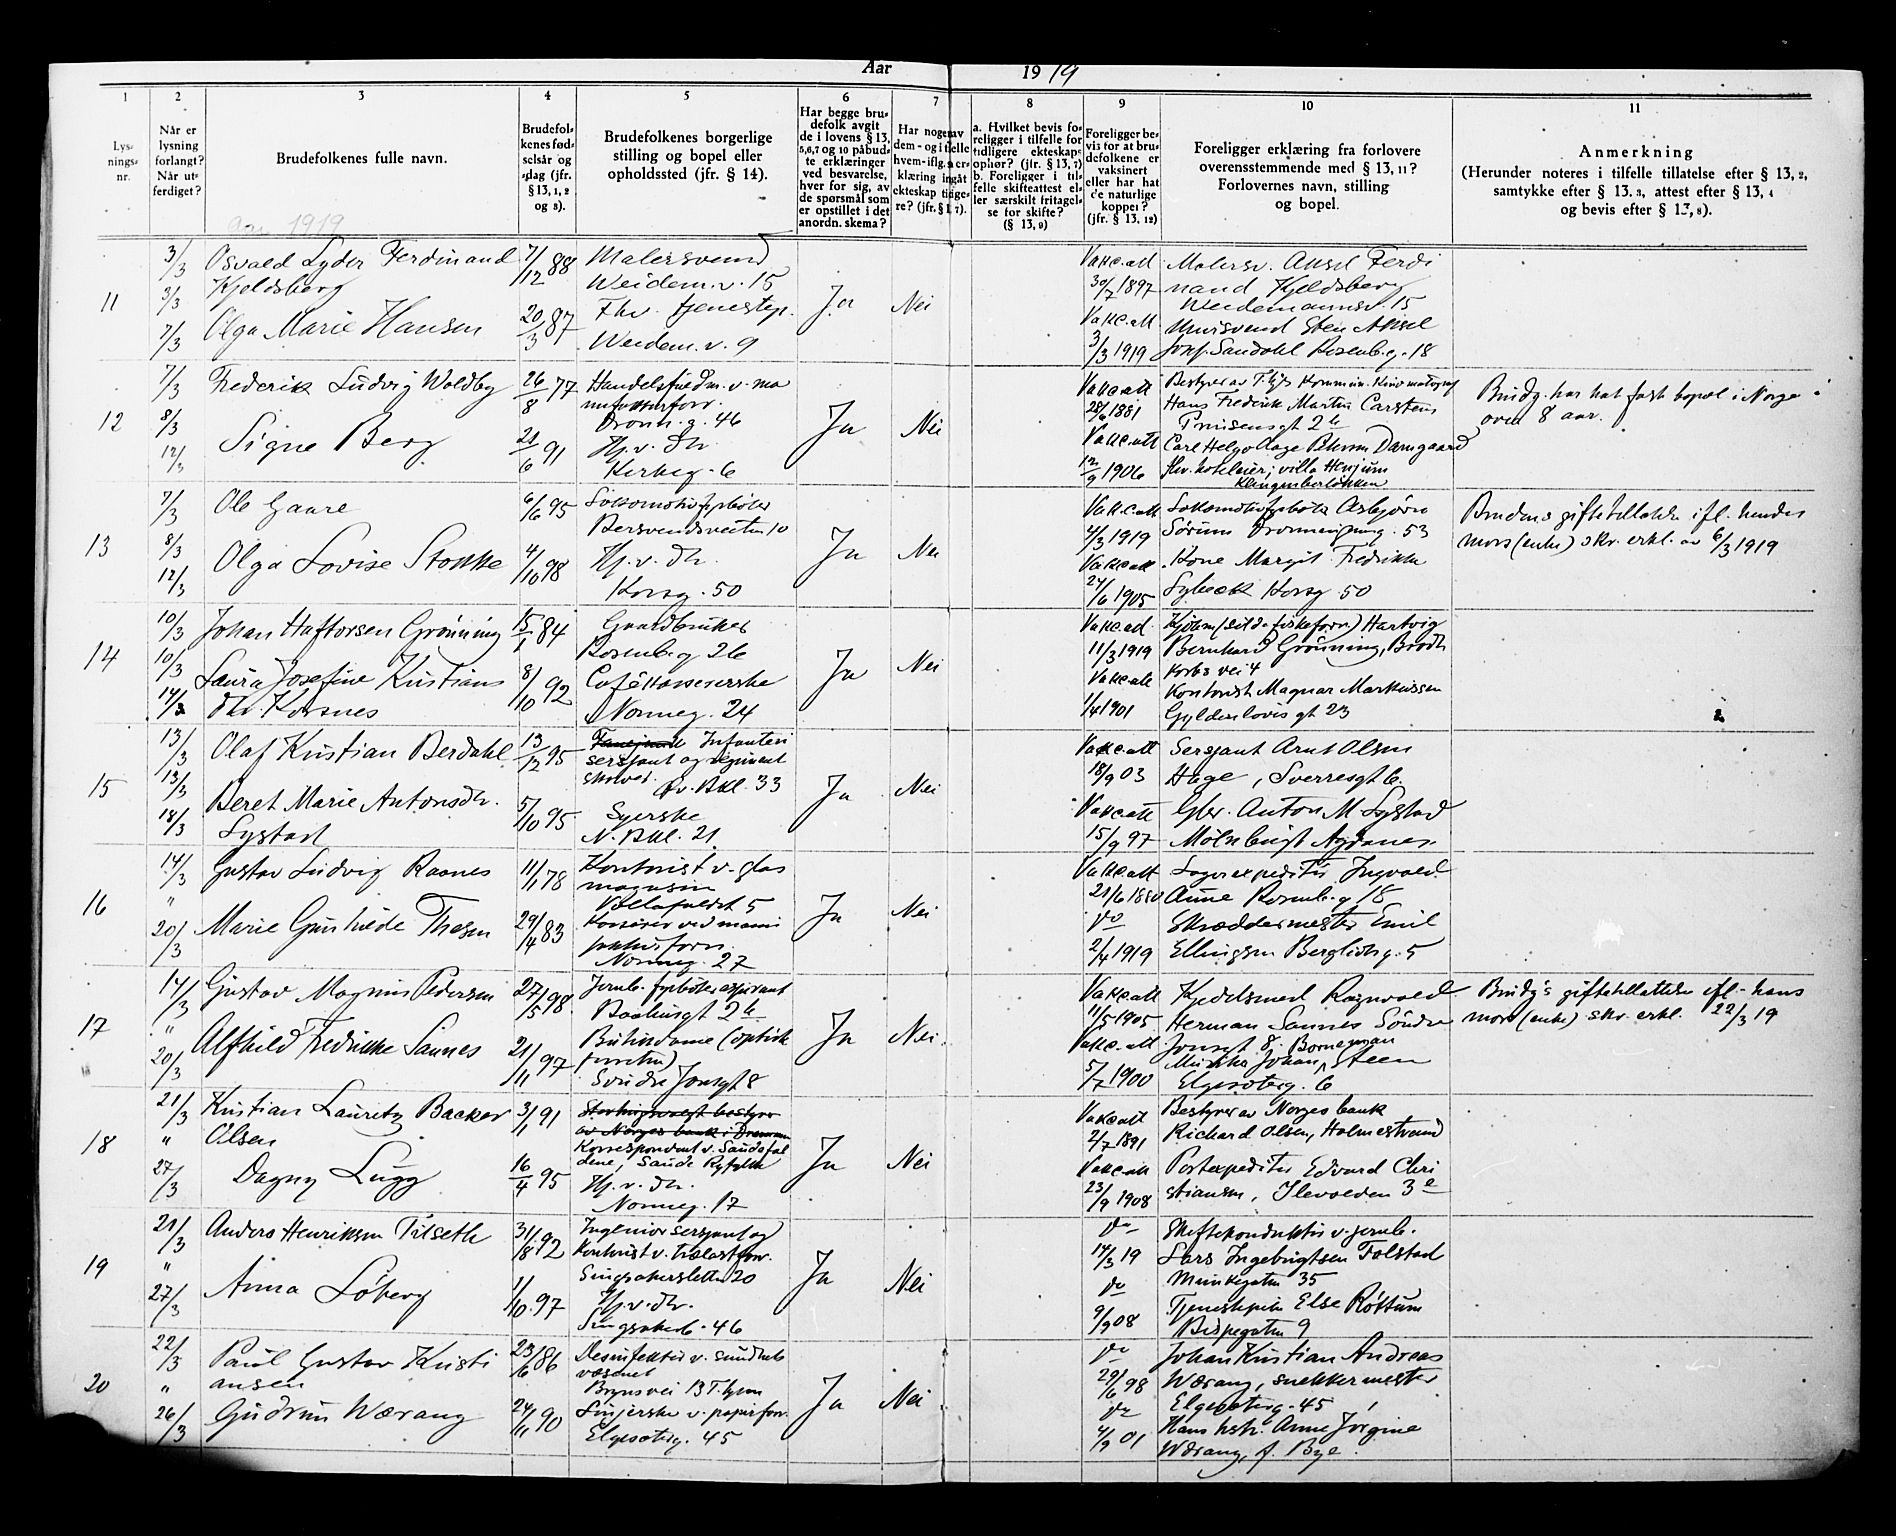 Aar 1919
1 2 3 4 5 6 7 8 9 10 11
Lys-
nings-
nr.
Når er
lysning
forlangt?
Når ut-
ferdiget?
Brudefolkenes fulle navn.
Brudefol-
kenes fød-
selsår og
-dag (jfr.
§ 13, 1, 2
og 3).
Brudefolkenes borgerlige
stilling og bopel eller
opholdssted (jfr. § 14).
Har begge bru-
defolk avgit
de i lovens § 13,
5,6,7 og 10 påbud-
te erklæringer
ved besvarelse,
hver for sig, av
de spørsmål som
er opstillet i det
anordn. skema?
Har nogen av
dem - og i tilfelle
hvem - iflg. a er-
klæring ingåt
ekteskap tidlige-
re? (jfr. § 1, 7).
a. Hvilket bevis fo-
religger i tilfelle for
tidligere ekteskaps
ophør? (jfr. § 13, 7)
b. Foreligger i til-
felle skifteattest el-
ler særskilt fritagel-
se for skifte?
(§ 13, 9)
Foreligger be-
vis for at bru-
defolkene er
vaksinert
eller har hat
de naturlige
kopper?
(jfr. § 13, 12)
Foreligger erklæring fra forlovere
overensstemmende med § 13, 11?
Forlovernes navn, stilling
og bopel.
Anmerkning
(Herunder noteres i tilfelle tillatelse efter § 13, 2,
samtykke efter § 13, 3, attest efter § 13, 4
og bevis efter § 13, 8).
Aar 1919
11
3/3
3/3
7/3
Osvald Lyder Ferdinand
Kjeldsberg
Olga Marie Hansen
7/12 88
20/3 87
Malersvend
Weidem.v. 15
Fhv. tjenestep.
Weidem. v. 9
Ja
Nei
Vakc.att
30/7 1897
Vakc.att
3/3 1919
Malersv. Aksel Ferdi
nand Kjeldsberg
Weidemannsv. 15
Mursvend Sten Aksel
Josf. Sandahl Rosenb.g. 18
12
7/3
8/3
12/3
Frederik Ludvig Woldby
Signe Berg
26/8 77
21/6 91
Handelsfuldm. v. ma
nufakturforr.
Dronn.g. 46
Hj. v. Dr.
Kirkeg. 6
Ja
Nei
Vakc.att
28/6 1881
Vakc.att
12/9 1906
Bestyrer av T.hjs Kommun. Kinomatograf
Hans Frederik Martin Carstens
Prinsensgt 24
Carl Helgo Aage Petersen Damgaard
fhv. hoteleier, villa Henjum
Klingenberløkken
Brudg. har hat fast bopæl i Norge i
over 8 aar.
13
7/3
8/3
12/3
Ole Gaare
Olga Lovise Stokke
6/6 95
4/10 98
Lokomotivfyrbøter
Bersvendsveiten 10
Hj. v. Dr.
Korsg. 50
Ja
Nei
Vakc.att
4/3 1919
Vakc.att
24/6 1905
Lokomotivfyrbøter Asbjørn
Sørum Dronningensg. 53
Kone Margit Fredrikke
Lybeck Korsg 50
Brudens giftetillatelse ifl. hendes
mors (enke) skr. erkl. av 6/3 1919
14
10/3
10/3
14/3
Johan Haftorsen Grønning
Laura Josefine Kristians
dtr. Korsnes
15/1 84
8/10 92
Gaardbruker
Rosenb.g 26
Cafékassererske
Nonneg. 24
Ja
Nei
Vakc.att
11/3 1919
Vakc.att
1/4 1901
Kjøbm (sild & fiskeforr) Hartvig
Bernhard Grønning, Brødr.
Korbs vei 4
Kontorist Magnar Markussen
Gyldenløvesgt 23
15
13/3
13/3
18/3
Olaf Kristian Berdahl
Beret Marie Antonsdtr.
Lystad
13/12 95
5/10 95
Fanejunk Infanteri
sersjant og regiment
skriver.
Øv. Bkl. 33
Syerske
N. Bkl. 21
Ja
Nei
Vakc.att
18/9 03
Vakc.att
15/9 97
Sersjant Arnt Olsen
Hage, Sverresgt 6.
Gbr. Anton M Lystad
Mølnbugt Agdenes
16
14/3
"
20/3
Gustav Ludvig Raanes
Marie Gunhilde Thesen
11/1 78
29/4 83
Kontorist v. glas
magasin
Vollafaldet 5
Kasserer ved manu
fakturforr.
Nonneg. 27
Ja
Nei
Vakc.att
21/6 1880
Do
2/4 1919
Lagerexpeditør Ingvald
Aune Rosenb.g 18
Skræddermester Emil
Ellingsen Bergliotsg. 5
17
14/3
"
20/3
Gustav Magnus Pedersen
Alfhild Fredrikke Sannes
27/5 98
21/1 97
Jernb. fyrbøteraspirant
Baahusgt 24
Butikdame (optisk
forretn)
Søndre Jonsgt 8
Ja
Nei
Vakc.att
11/5 1905
Vakc.att
5/7 1900
Kjedelsmed Ragnvald
Herman Sannes Søndre
Jonsgt 8. Borneman
Musiker Johan Steen
Elgesæterg. 6
Brudg's giftetillatelse ifl. hans
mors (enke) skr. erkl. 22/3 19
18
21/3
"
27/3
Kristian Lauretz Backer
Olsen
Dagny Lugg
3/1 91
16/4 95
av Norges bank i Drammen
Korrespondent v. Saudefal
dene, Saude Ryfylke
Hj. v. Dr.
Nonneg. 17
Ja
Nei
Vakc.att
2/7 1891
Vakc.att
23/9 1908
Bestyrer av Norges bank
Richard Olsen, Holmestrand
Postexpeditør Edvard Chri
stiansen, Ilevolden 3e
19
21/3
"
27/3
Anders Henriksen Tilseth
Anna Løberg
31/8 92
1/10 97
Ingeniørsersjant og
Kontorist v. trælastforr.
Singsakersletten 20
Hj. v. Dr.
Singsakerb. 46
Ja
Nei
Do
14/3 19
Do
9/9 08
Skiftekonduktør v. jernb.
Lars Ingebrigtsen Folstad
Munkegaten 35
Tjenestepike Else Røttum
Bispegaten 9
20
22/3
"
26/3
Paul Gustav Kristi
ansen
Gudrun Wærang
23/6 86
24/1 90
Desinfektør v. sundhets
væsenet
Brynsvei 13 T.hjem
Linjerske v. papirforr.
Elgesæterg. 45
Ja
Nei
Do
29/6 98
Do
4/9 01
Johan Kristian Andreas
Wærang, snekkermester
Elgesæterg. 45
Hans hstr. Anne Jørgine
Wærang, f. Bye.